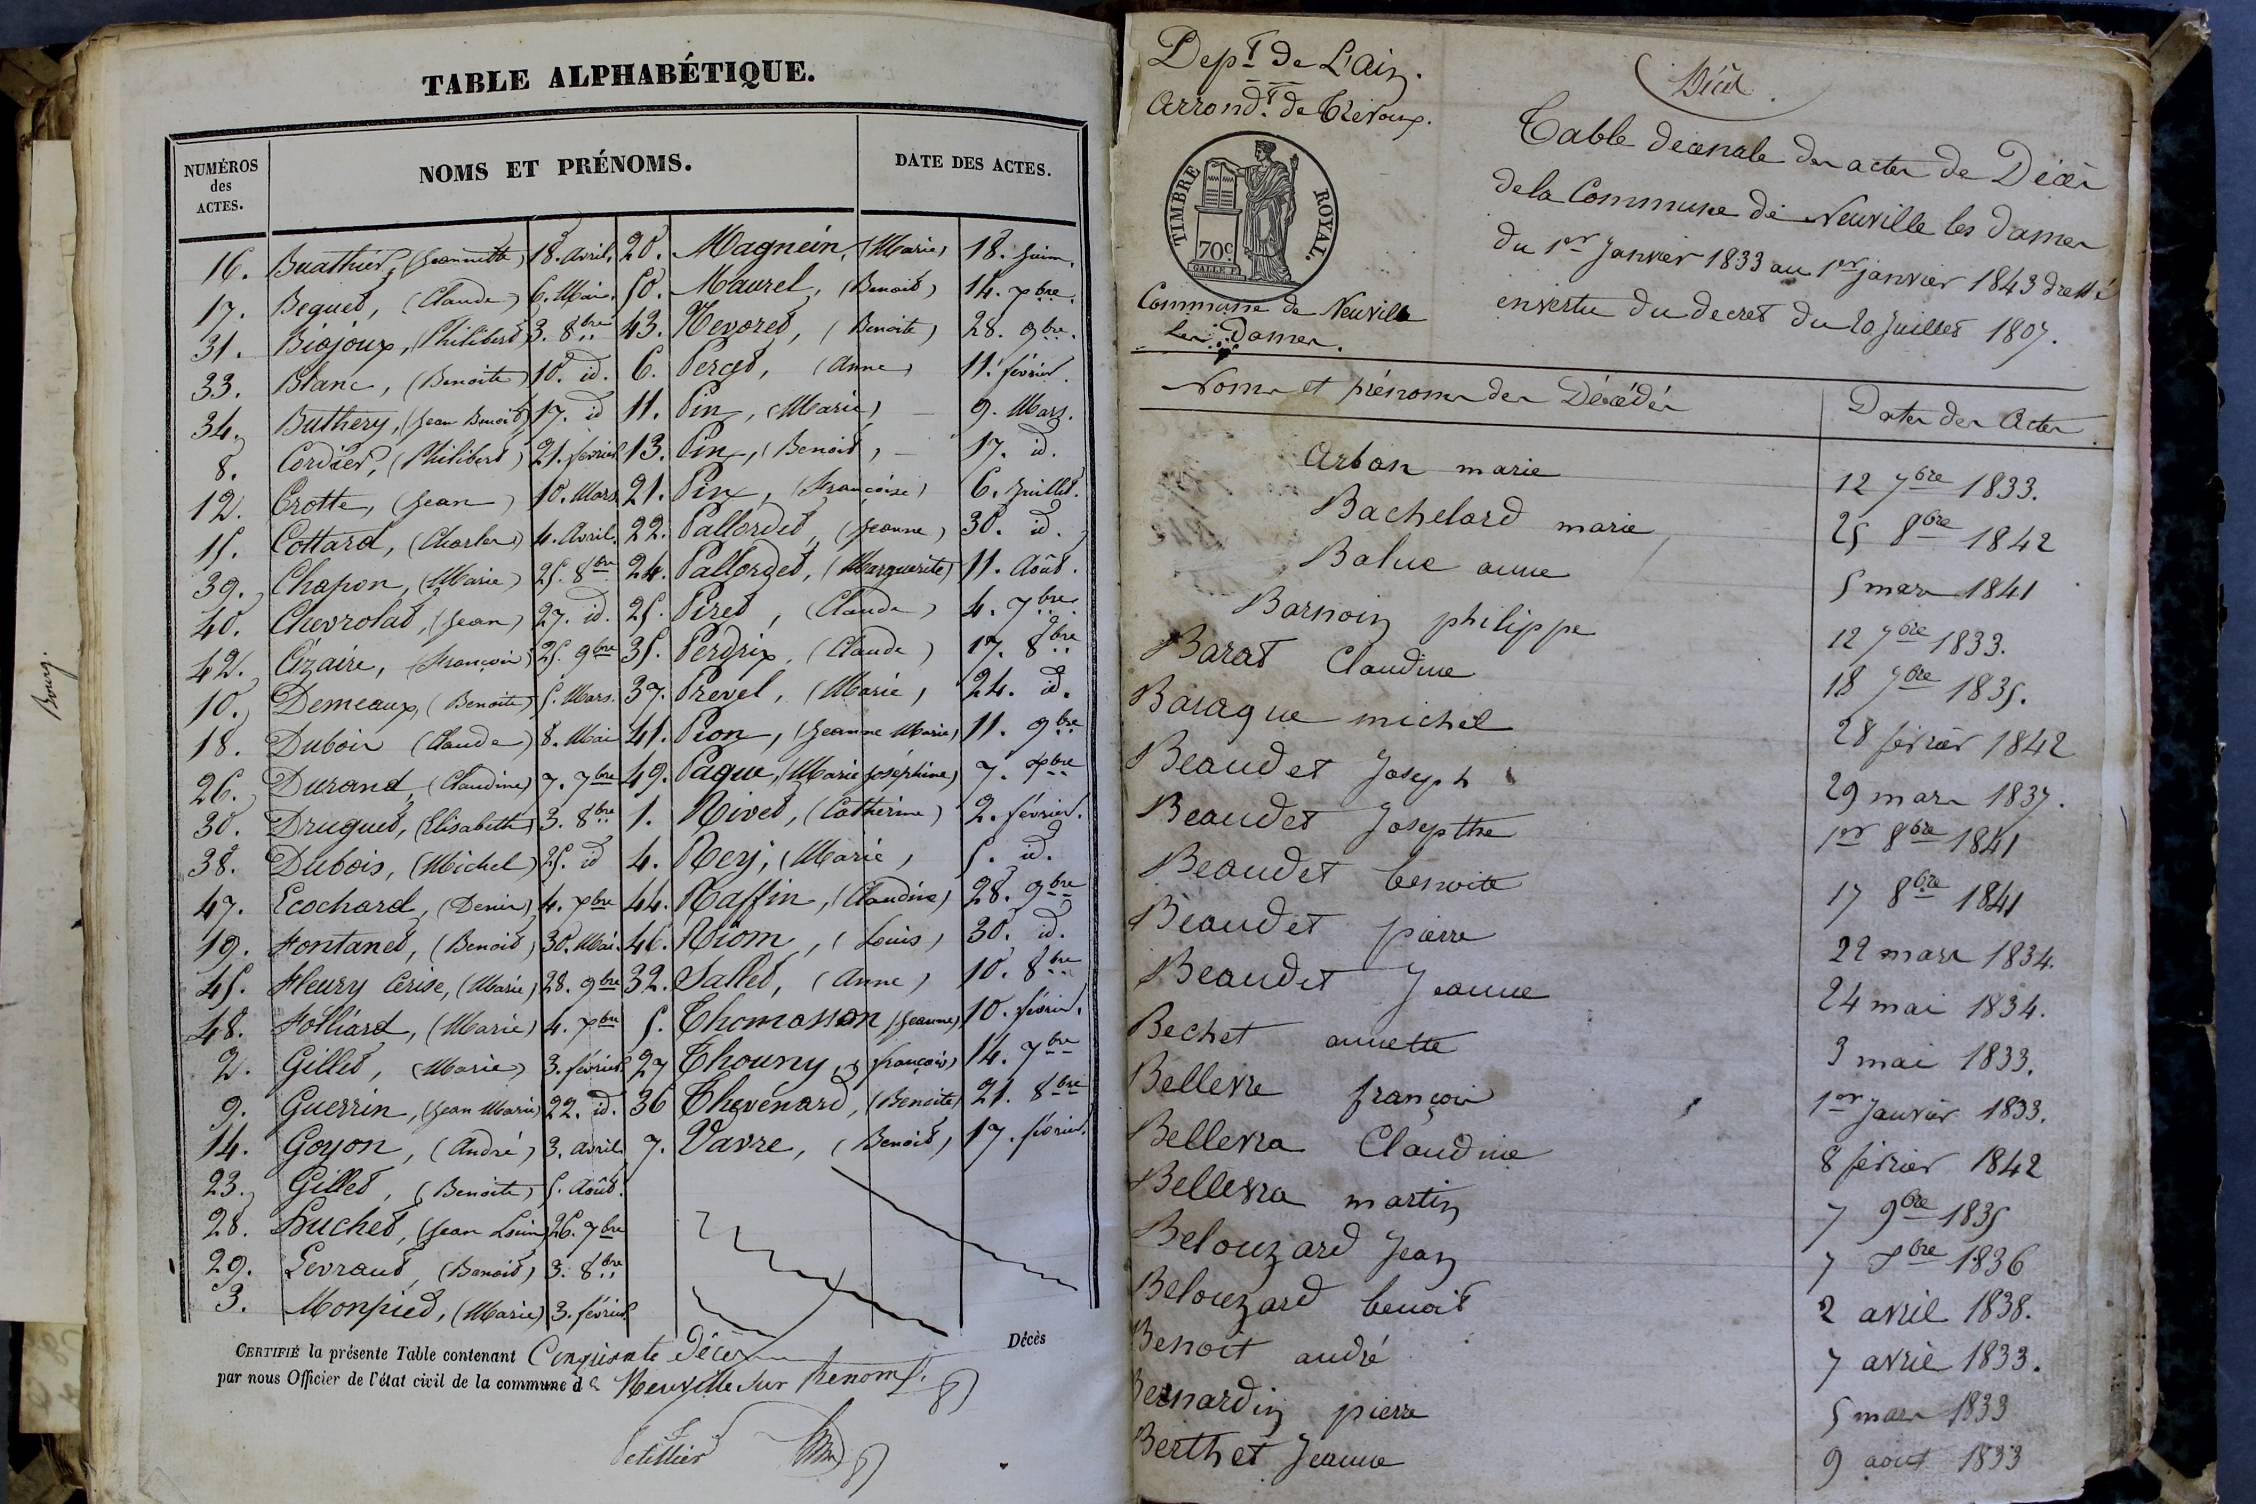 TABLE ALPHABÉTIQUE.
NUMÉROS des ACTES.
NOMS ET PRÉNOMS.
DATE DES ACTES.
16. Buathier, (Jeannette) 18. Avril.
17. Beguet, (Claude) 6. Mai.
31. Biajoux, (Philibert) 3. 8bre
33. Blanc, (Benoite) 10. id.
34. Buthery, (Jean Benoit) 17. id
8. Cordier, (Philibert) 21. février
12. Crotte, (Jean) 10. Mars
15. Cottard, (Charles) 4. Avril.
39. Chapon, (Marie) 25. 8bre
40. Chevrolat, (Jean) 27. id.
42. Cizaire, (François) 25. 9bre
10. Demeaux, (Benoite) 5. Mars.
18. Dubois (Claude) 8. Mai
26. Durand, (Claudine) 7. 7bre
30. Druguet, (Elisabeth) 3. 8bre
38. Dubois, (Michel) 25. id
47. Ecochard, (Denis) 4. Xbre
19. Fontanet, (Benoit) 30. Mai.
45. Fleury Cerise, (Marie) 28. 9bre
48. Folliard, (Marie) 4. Xbre
2. Gillet, (Marie) 3. février
9. Guerrin, (Jean Marie) 22. id.
14. Goyon, (André) 3. avril.
23. Gillet, (Benoite) 5. Août.
28. Huchet, (Jean Louis) 26. 7bre
29. Levraut, (Benoit) 3. 8bre
3. Monpied, (Marie) 3. février
20. Magnein, (Marie) 18. Juin.
50. Maurel, (Benoit) 14. Xbre.
43. Nevoret, (Benoite) 28. 9bre.
6. Percet, (Anne) 11. février.
11. Pin, (Marie) 9. Mars.
13. Pin, (Benoit) 17. id.
21. Pin, (Françoise) 6. Juillet.
22. Pallordet, (Jeanne) 30. id.
24. Pallordet, (Marguerite) 11. Août.
25. Piret, (Claude) 4. 7bre.
35. Perdrix, (Claude) 17. 8bre
37. Prevel, (Marie) 24. id.
41. Pion, (Jeanne Marie) 11. 9bre
49. Paque, (Marie Joséphine) 7. Xbre
1. Rivet, (Catherine) 2. février.
4. Rey, (Marie) 5. id.
44. Raffin, (Claudine) 28. 9bre
46. Riom, (Louis) 30. id.
32. Sallet, (Anne) 10. 8bre
5. Thomasson (Jeanne) 10. février.
27 Thouny, (françois) 14. 7bre
36 Thevenard, (Benoite) 21. 8bre
7. Vavre, (Benoit) 17. février.
CERTIFIÉ la présente Table contenant Cinquante Décès Décès
par nous Officier de l'état civil de la commune de Neuville sur Renom
Bourg.
Dept de L'Ain.
Arrondt de Trévoux.
TIMBRE ROYAL.
70c
Commune de Neuville
les Dames.
Décès
Table décenale des actes de Décès
de la Commune de Neuville les dames
du 1er Janvier 1833 au 1er janvier 1843 dressé
en vertu du decret du 20 Juillet 1807.
Noms et prénoms des Décédés
Dates des Actes
Arban marie 12 7bre 1833.
Bachelard marie 25 8bre 1842
Baluc anne 5 mars 1841
Barnoin philippe 12 7bre 1833.
Barat Claudine 18 7bre 1835.
Baraque michel 28 février 1842
Beaudet Joseph 29 mars 1837.
Beaudet Josepthe 1er 8bre 1841
Beaudet benoite 17 8bre 1841
Beaudet pierre 22 mars 1834.
Beaudet Jeanne 24 mai 1834.
Bechet annette 3 mai 1833.
Bellevra françois 1er Janvier 1833.
Bellevra Claudine 8 février 1842
Bellevra martin 7 9bre 1835
Belouzard Jean 7 Xbre 1836
Belouzard benoit 2 avril 1838.
Benoit andré 7 avril 1833.
Bernardin pierre 5 mars 1833
Berthet Jeanne 9 aout 1833